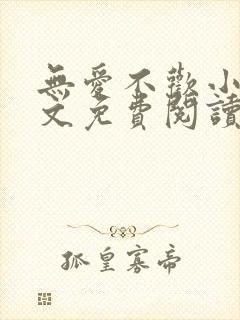 無愛不歡小
文免費閱讀
孤皇寡帝